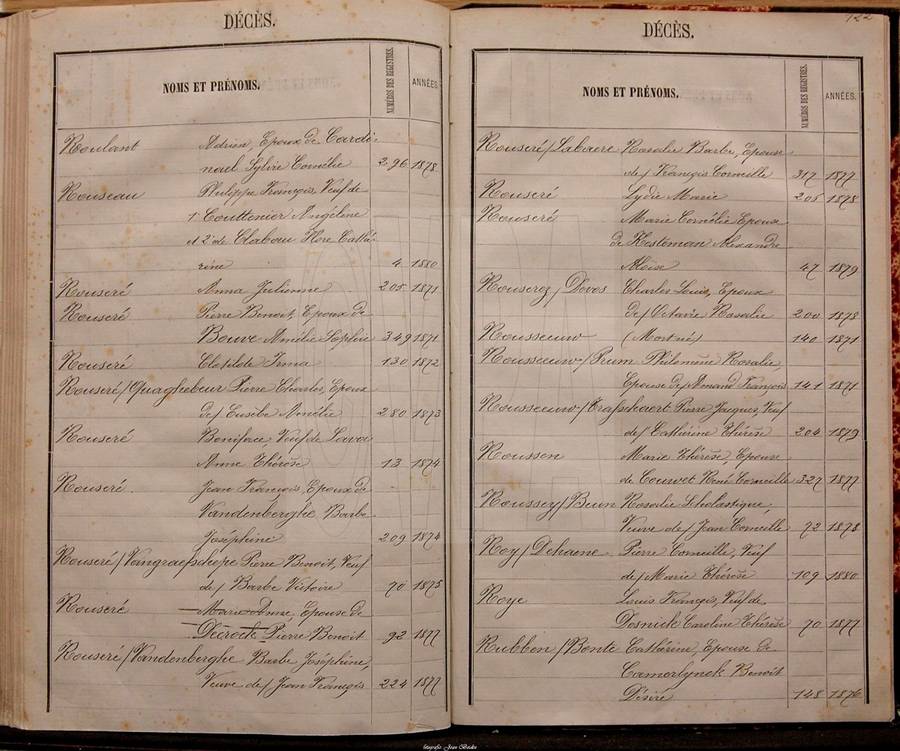 DÉCÈS.
NOMS ET PRÉNOMS.
NUMÉROS DES REGISTRES.
ANNÉES.
Roulant Adrien, Epoux de Cardi-
nael Sylvie Cornélie 296 1878
Rouseau Philippe François, Veuf de
1° Couttenier Angéline
et 2° de Clabau Flore Cathé-
rine 4 1880
Rouseré Anna Julienne 205 1871
Rouseré Pierre Benoit, Epoux de
Bouve Amélie Sophie 349 1871
Rouseré Clotilde Irma 130 1872
Rouseré/Quaghebeur Pierre Charles, Epoux
de/ Eusèbe Amélie 280 1873
Rouseré Boniface Veuf de
Anne Thérèse 13 1874
Rouseré. Jean François, Epoux de
Vandenberghe Barbe
Joséphine 209 1874
Rouseré/Vaingraefschepe Pierre Benoit, Veuf
de/ Barbe Victoire 70 1875
Rouseré Marie Anne, Epouse de
Decrock Pierre Benoit 92 1877
Rouseré/Vandenberghe Barbe Joséphine,
Veuve de/ Jean François 224 1877
122
DÉCÈS.
NOMS ET PRÉNOMS.
NUMÉROS DES REGISTRES.
ANNÉES.
Rouseré/Labaere Rosalie Barbe, Epouse
de/ François Corneille 317 1877
Rouseré Lydie Marie 205 1878
Rouseré Marie Cornélie Epouse
de Kesteman Alexandre
Aloïse 47 1879
Rouseroz/Devos Charles Louis, Epoux
de/ Octavie Rosalie 200 1878
Rousseeuw (Mort né) 140 1871
Rousseeuw/Prum Philomène Rosalie,
Epouse de/ Amand François 141 1871
Rousseeuw/Trasschaert Pierre Jacques Veuf
de/ Cathérine Thérèse 204 1879
Roussen Marie Thérèse, Epouse
de Couvet René Corneille 327 1877
Roussey/Beun Rosalie Scholastique,
Veuve de/ Jean Corneille 72 1878
Roy/Dehaene Pierre Corneille, Veuf
de/ Marie Thérèse 109 1880
Roye Louis François, Veuf de
Dosnick Caroline Thérèse 70 1877
Rubben/Bonte Cathérine, Epouse de
Camerlynck Benoit
Désiré 148 1876
fotografie Jean Beeke